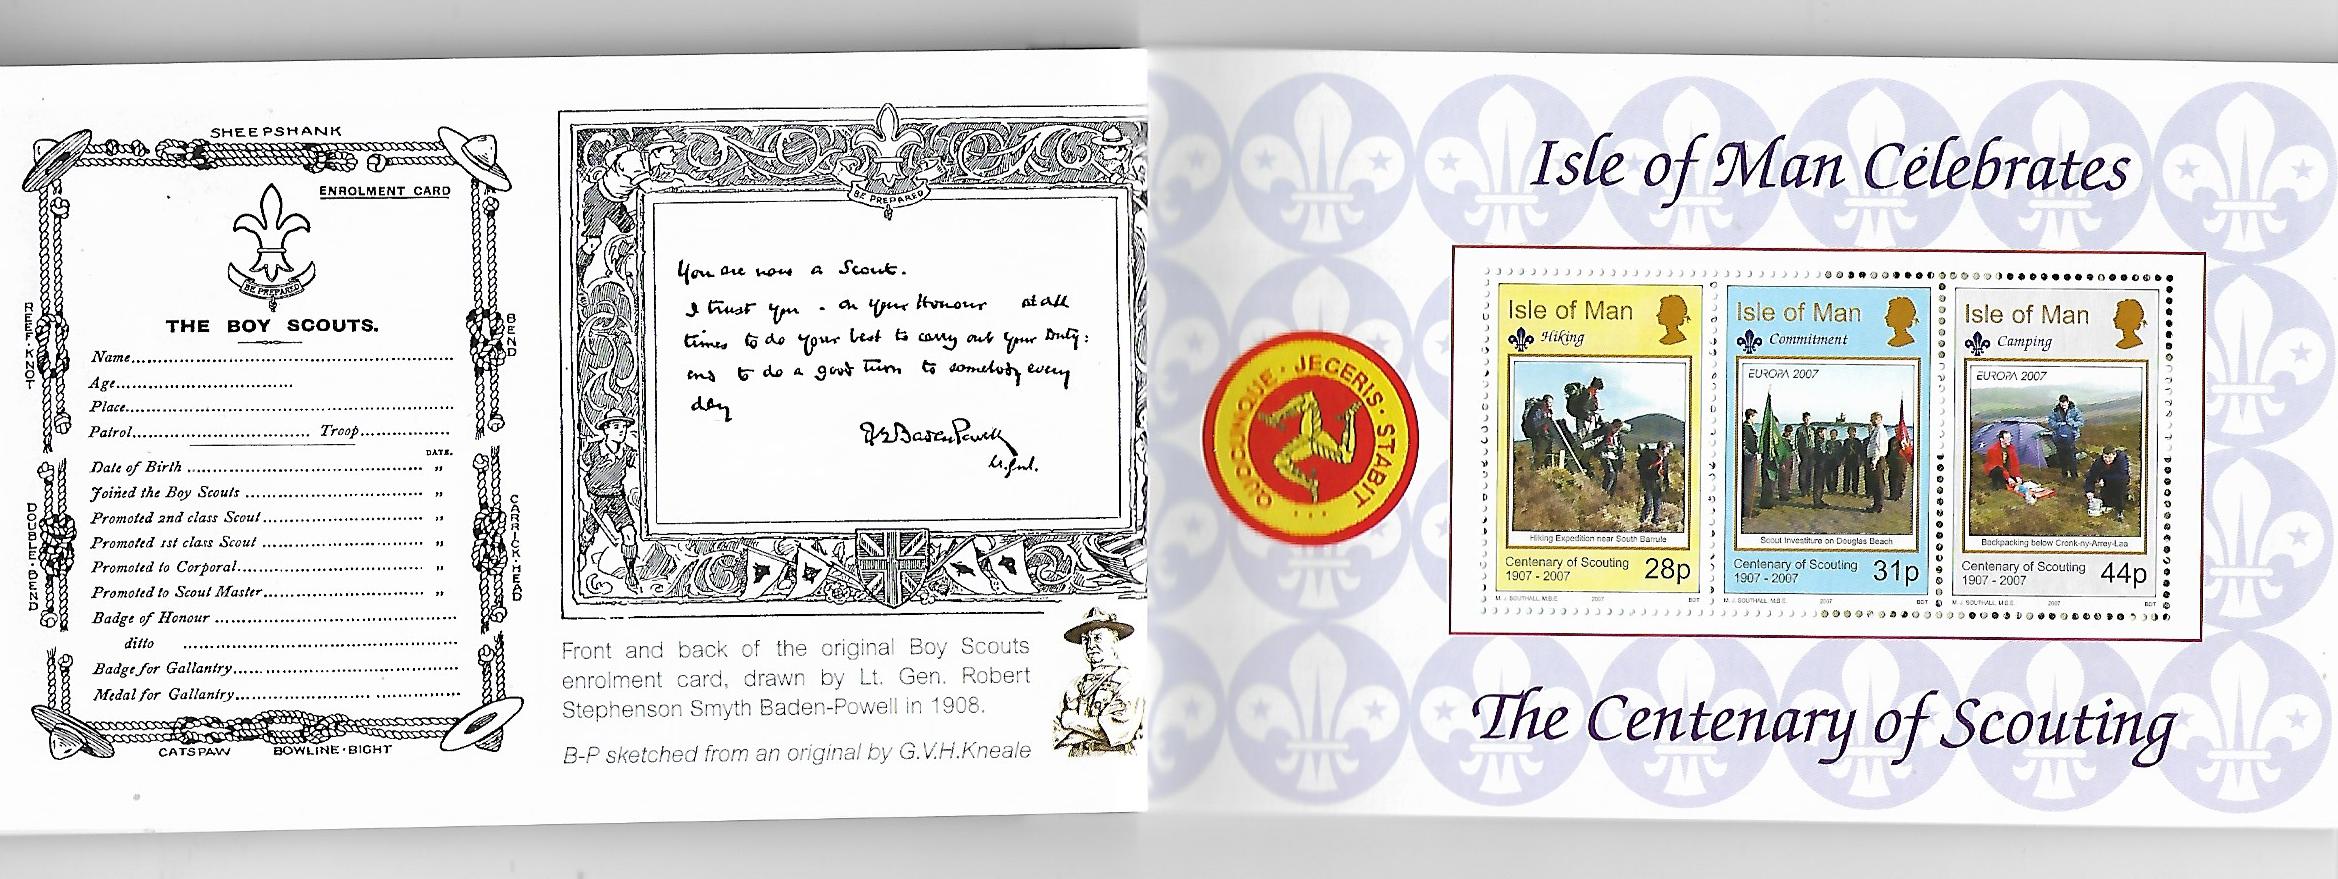 SHEEPSHANK
ENROLMENT CARD
BE PREPARED
THE BOY SCOUTS.
REEF·KNOT
BEND
Name
Age
Place
Patrol Troop
DATE.
Date of Birth „
Joined the Boy Scouts „
Promoted 2nd class Scout „
Promoted 1st class Scout „
Promoted to Corporal „
Promoted to Scout Master „
Badge of Honour
ditto
Badge for Gallantry
Medal for Gallantry
DOUBLE·BEND
CARRICK·HEAD
CATSPAW BOWLINE·BIGHT
BE PREPARED
You are now a Scout.
I trust you - on your Honour at all
times to do your best to carry out your Duty:
and to do a good turn to somebody every
day
Front and back of the original Boy Scouts
enrolment card, drawn by Lt. Gen. Robert
Stephenson Smyth Baden-Powell in 1908.
B-P sketched from an original by G.V.H.Kneale
Isle of Man Celebrates
QUOCUNQUE · JECERIS · STABIT
Isle of Man
Hiking
Hiking Expedition near South Barrule
Centenary of Scouting
1907 - 2007 28p
M. J. SOUTHALL, M.B.E. 2007 BDT
Isle of Man
Commitment
EUROPA 2007
Scout Investiture on Douglas Beach
Centenary of Scouting
1907 - 2007 31p
M. J. SOUTHALL, M.B.E. 2007 BDT
Isle of Man
Camping
EUROPA 2007
Backpacking below Cronk-ny-Arrey-Laa
Centenary of Scouting
1907 - 2007 44p
M. J. SOUTHALL, M.B.E. 2007 BDT
The Centenary of Scouting